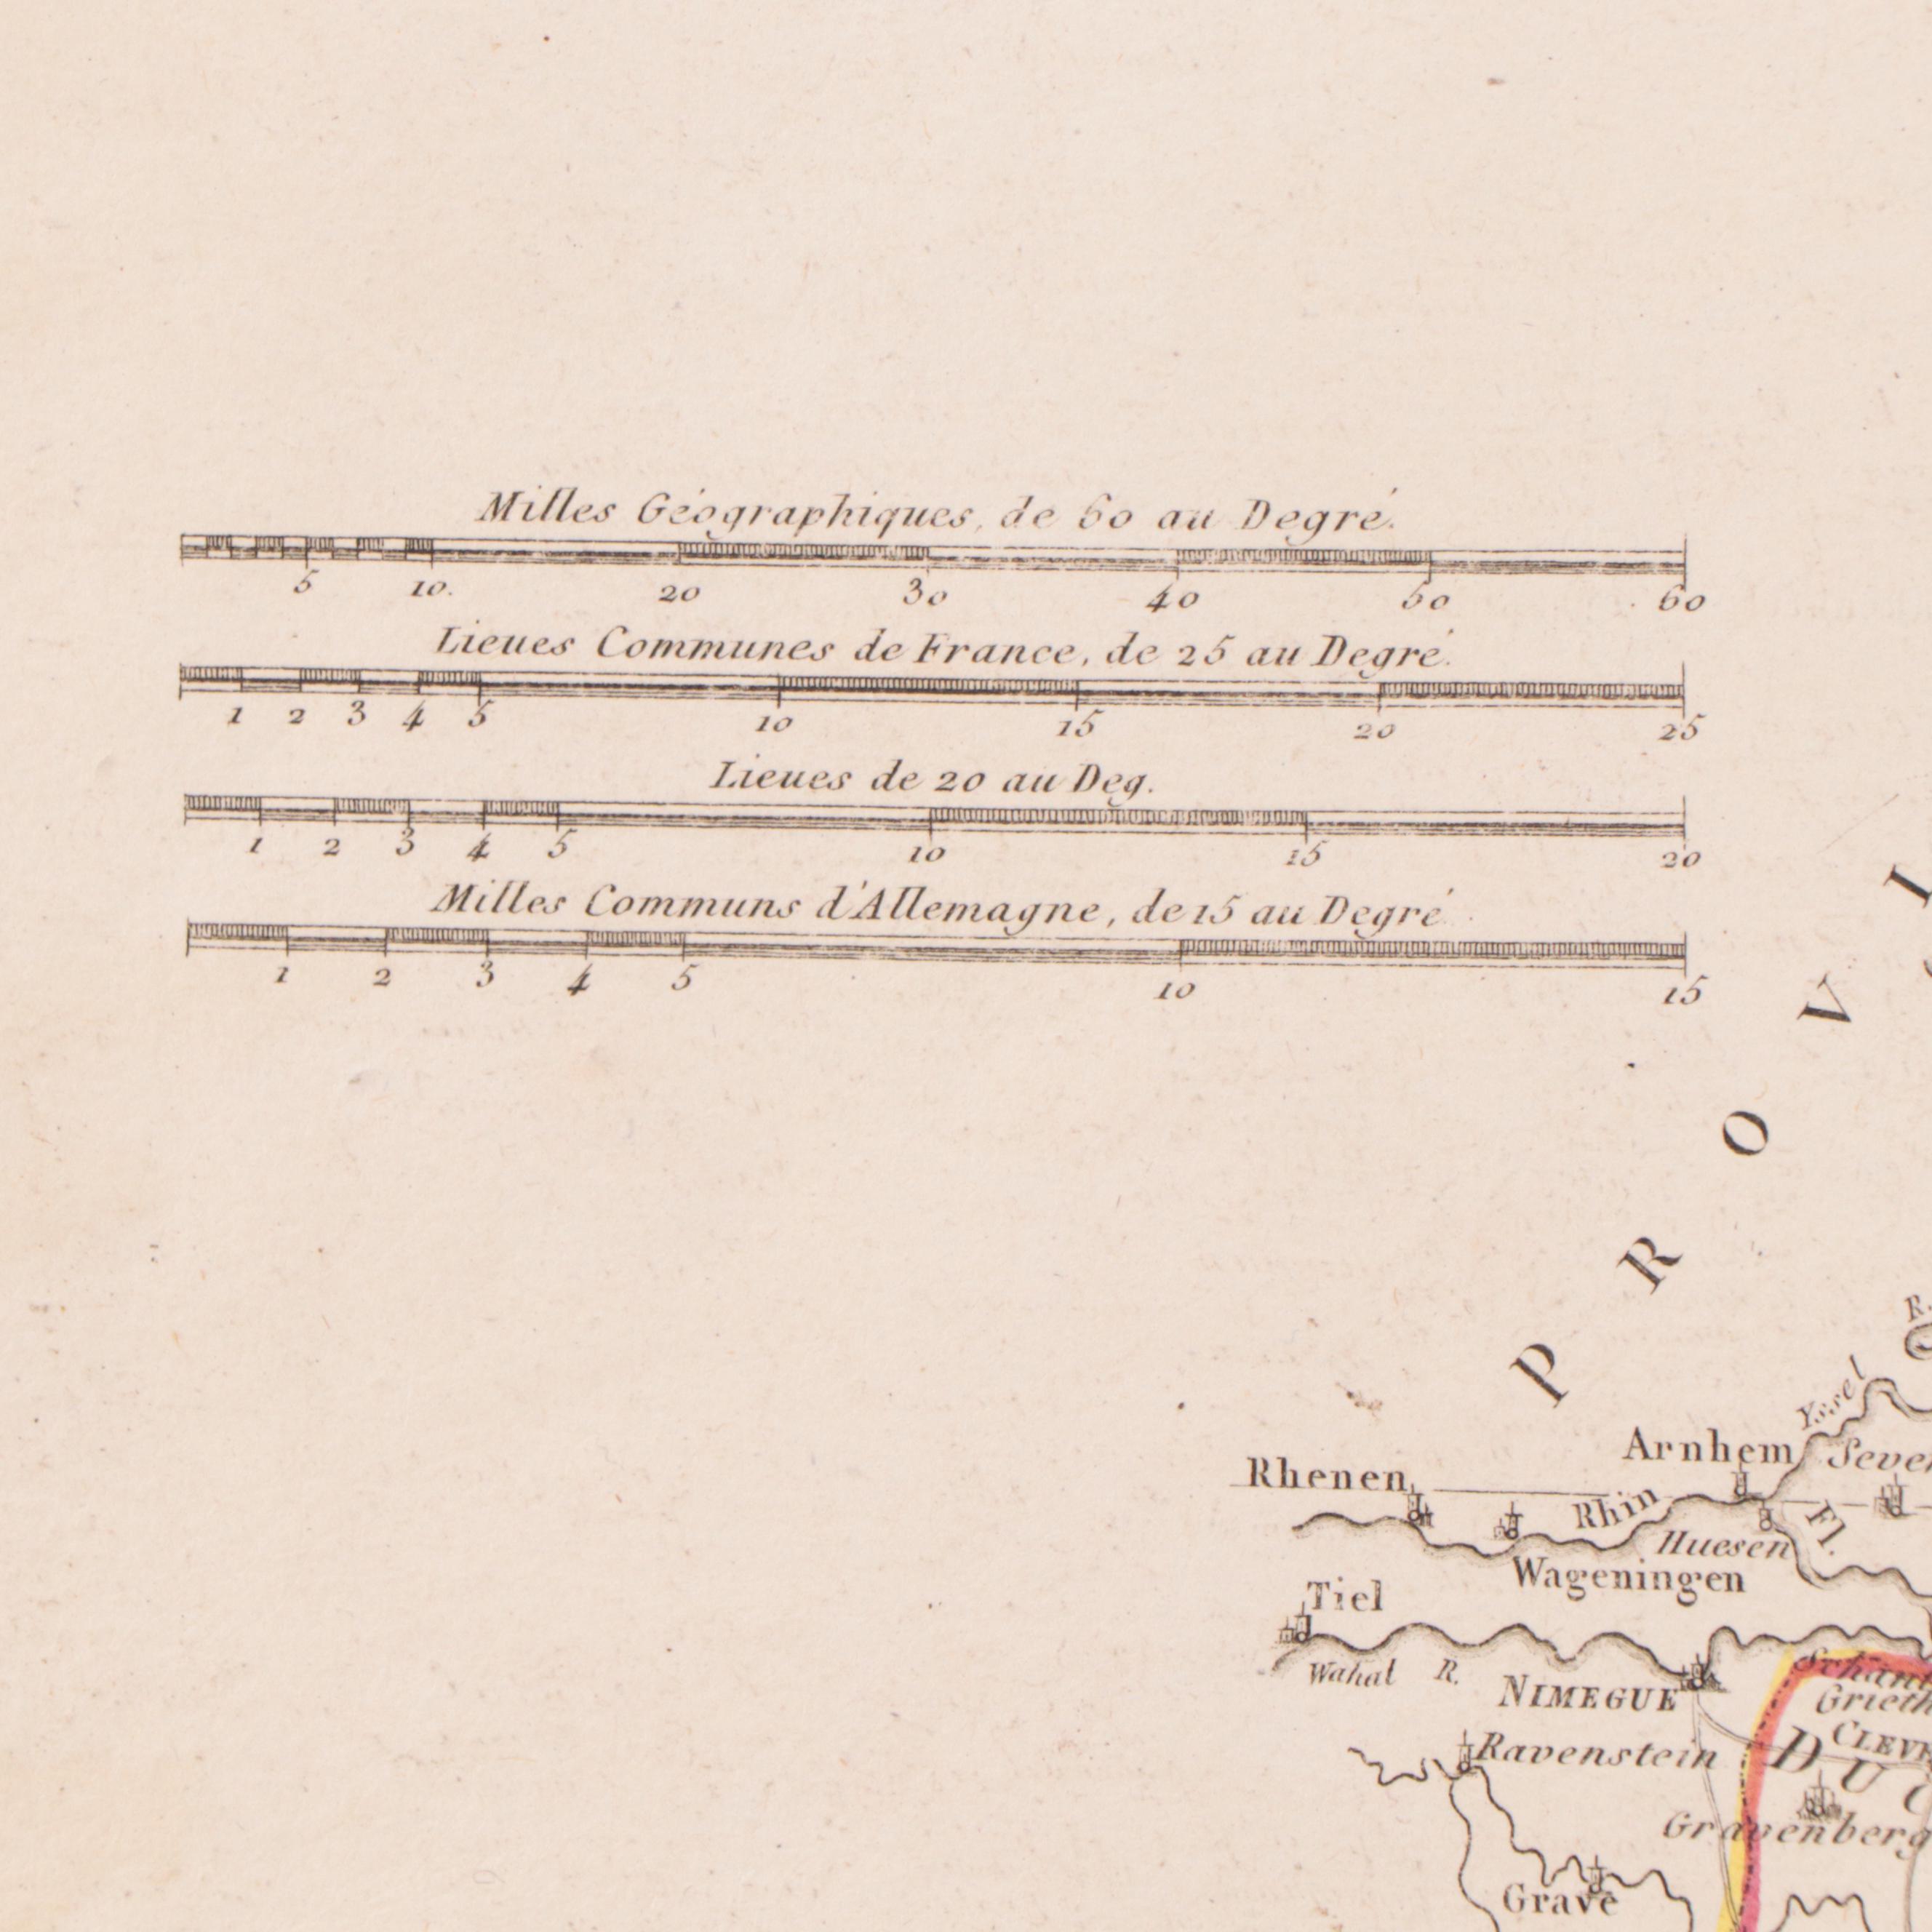 Milles Géographiques, de 60 au Degré.
5 10. 20 30 40 50 60
Lieues Communes de France, de 25 au Degré.
1 2 3 4 5 10 15 20 25
Lieues de 20 au Deg.
1 2 3 4 5 10 15 20
Milles Communs d'Allemagne, de 15 au Degré
1 2 3 4 5 10 15
P R O V I
R.
Yssel
Arnhem
Rhenen
Rhin
Fl.
Huesen
Wageningen
Tiel
Wahal R.
NIMEGUE
Ravenstein
D U
Gravenberg
Grave